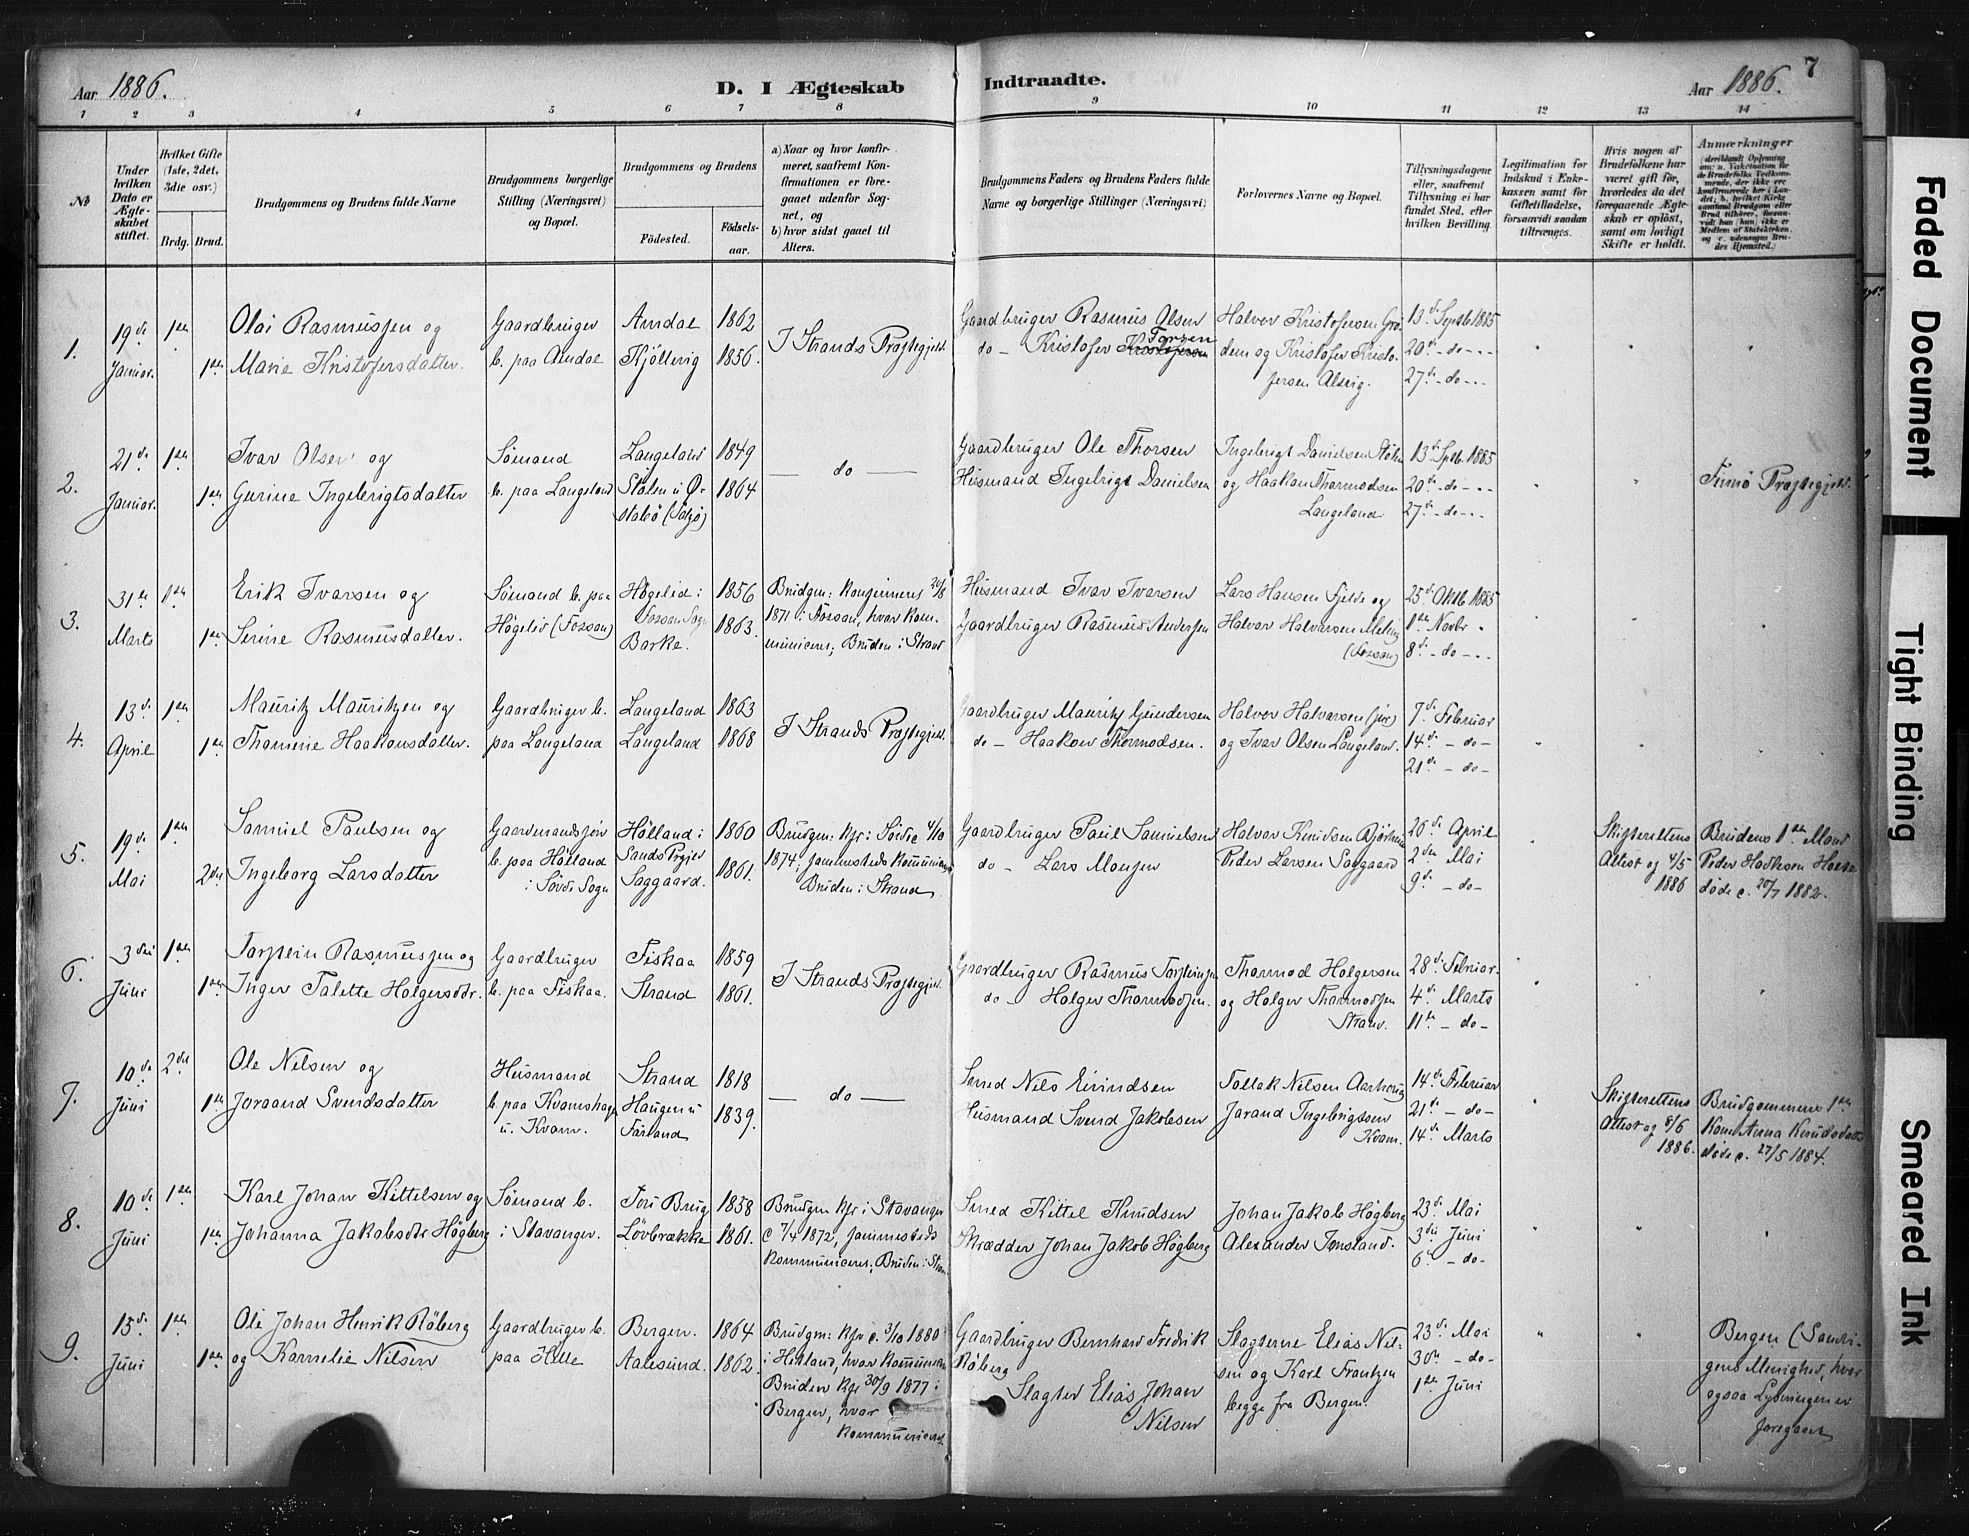 Aar 1886. D. I Ægteskab Indtraadte. Aar 1886. 7
1 2 3 4 5 6 7 8 9 10 11 12 13 14
No
Under hvilken Dato er Ægteskabet stiftet.
Hvilket Gifte (1ste, 2det, 3die osv.)
Brdg. Brud.
Brudgommens og Brudens fulde Navne
Brudgommens borgerlige Stilling (Næringsvei) og Bopæl.
Brudgommens og Brudens
Födested.
Födsels-aar.
a) Naar og hvor konfirmeret, saafremt Konfirmationen er foregaaet udenfor Sognet, og
b) hvor sidst gaaet til Alters.
Brudgommens Faders og Brudens Faders fulde Navne og borgerlige Stillinger (Næringsvei)
Forlovernes Navne og Bopæl.
Tillysningsdagene eller, saafremt Tillysning ei har fundet Sted, efter hvilken Bevilling.
Legitimation for Indskud i Enkekassen samt for Giftetilladelse, forsaavidt saadan tiltrænges.
Hvis nogen af Brudefolkene har været gift för, hvorledes da det foregaaende Ægteskab er oplöst, samt om lovligt Skifte er holdt.
Anmærkninger
1. 19de Januar. 1ste 1ste
Olai Rasmussen og
Marie Kristofersdatter.
Gaardbruger
b. paa Amdal
Amdal 1862
Kjölevig 1856.
I Strands Præstegjeld.
Gaardbruger Rasmus Olsen
do - Kristofer Torsen
Halvor Kristofersen Gro-
dem og Kristofer Kristo-
fersen Alsvig.
13de Septb. 1885
20de - do -
27de - do -
2. 21de Januar. 1ste 1ste
Ivar Olsen og
Gurine Ingebrigtsdatter
Sömand
b. paa Langeland
Langeland 1849
Stölen u. Ö- 1864
stabö
— do —
Gaardbruger Ole Thorsen
Husmand Ingebrigt Danielsen
Ingebrigt Danielsen Stölen
og Haakon Thormodsen
Langeland
13de Septb. 1885
20de - do -
27de - do -
Finnö Præstegjeld.
3. 31te Marts 1ste 1ste
Erik Ivarsen og
Serine Rasmusdatter.
Sömand b. paa
Högelid (Fossan)
Högelid i 1856
Fossan Sogn
Barke. 1863.
Brudgm: konfirmeret 20/8
1871 i Fossan, hvor kom-
municeret; Bruden i Strand
Husmand Ivar Ivarsen
Gaardbruger Rasmus Anderssen
Lars Hansen Fjelde og
Halvor Halvorsen Meling
(Fossan)
25de Oktb. 1885
1ste Novbr.
8de - do -
4. 13de April 1ste 1ste
Mauritz Mauritzen og
Thomine Haakonsdatter.
Gaardbruger b.
paa Langeland
Langeland 1863
Langeland 1868
I Strands Præstegjeld.
Gaardbruger Mauritz Gundersen
do - Haakon Thormodsen.
Halvor Halvorsen (jör)
og Ivar Olsen Langeland.
7de Februar
14de - do -
21de - do -
5. 19de Mai 1ste 2den
Samuel Paulsen og
Ingeborg Larsdatter
Gaardmandssön
b. paa Hölland
i Sövde Sogn
Hölland i 1860
Sands Prgjld
Saggaard. 1861.
Brudgm: kfr. i Sövde 4/10
1874, sammesteds kommuniceret,
Bruden i Strand.
Gaardbruger Paul Samuelsen
do - Lars Monsen
Halvor Knudsen Björheim
Peder Larsen Saggaard
26de April
2den Mai
9de - do -
Skifterettens
Attest og 4/5
1886
Brudens 1ste Mand
döde c. 20/7 1882.
6. 3die Juni 1ste 1ste
Torstein Rasmussen og
Inger Talette Holgersdtr.
Gaardbruger
b. paa Fiskaa.
Fiskaa 1859
Strand 1861.
I Strands Præstegjeld.
Gaardbruger Rasmus Torsteinsen
do - Holger Thormodsen.
Thormod Holgersen
og Holger Thormodsen
Strand.
28de Februar.
4de Marts
11te - do -
7. 10de Juni 2det 1ste
Ole Nilsen og
Joraand Svendsdatter
Husmand
b. paa Kvamshagen
u. Kvam.
Strand 1818
Haugen u 1839.
Förland
— do —
Smed Nils Eivindsen
Husmand Svend Jakobsen
Tollak Nilsen Aarhoug
Jarand Ingebrigtsen
Kvam.
14de Februar
21de - do -
14de Marts
Skifterettens
Attest og 8/6
1886.
Brudgommens 1ste
Kone Anna Knudsdatter
döde c. 27/5 1884.
8. 10de Juni 1ste 1ste
Karl Johan Kittelsen og
Johanna Jakobsdtr Högberg
Sömand b.
i Stavanger.
Fori Brug 1858
Lövbrække 1861.
Brudgm kfr i Stavanger
c 7/4 1872, sammesteds
kommuniceret; Bruden i Strand
Smed Kittel Knudsen
Skrædder Johan Jakob Högberg
Johan Jakob Högberg
Alexander Tonsland.
23de Mai
3die Juni
6te - do -
9. 15de Juni 1ste 1ste
Ole Johan Henrik Röberg
og Kornelie Nilsen
Gaardbruger b.
paa Helle
Bergen. 1864
Aalesund. 1862.
Brudgm: kfr. c. 3/10 1880
i Hetland, hvor kommuniceret
Bruden kfr 30/9 1877 i
Bergen, hvor
kommuniceret.
Gaardbruger Bernhard Fredrik
Röberg
Slagter Elias Johan
Nilsen
Slagterne Elias Nil-
sen og Karl Frantzen
begge fra Bergen.
23de Mai
30te - do -
1ste Juni
Bergen (Sandvi-
gens Menighed, hvor
ogsaa Lysningen er
foregaaet
Faded Document
Tight Binding
Smeared Ink